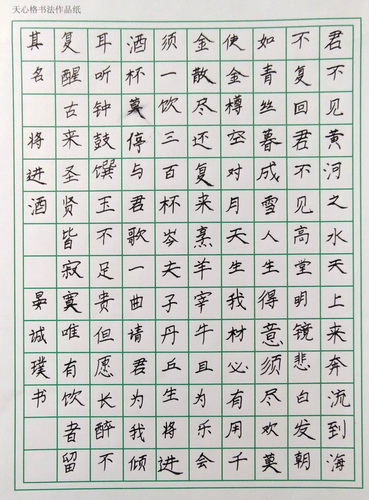 天心格书法作品纸
君不见黄河之水天上来奔流到海
不复回君不见高堂明镜悲白发朝
如青丝暮成雪人生得意须尽欢莫
使金樽空对月天生我材必有用千
金散尽还复来烹羊宰牛且为乐会
须一饮三百杯岑夫子丹丘生将进
酒杯莫停与君歌一曲请君为我倾
耳听钟鼓馔玉不足贵但愿长醉不
复醒古来圣贤皆寂寞唯有饮者留
其名 将进酒 晏诚璞书